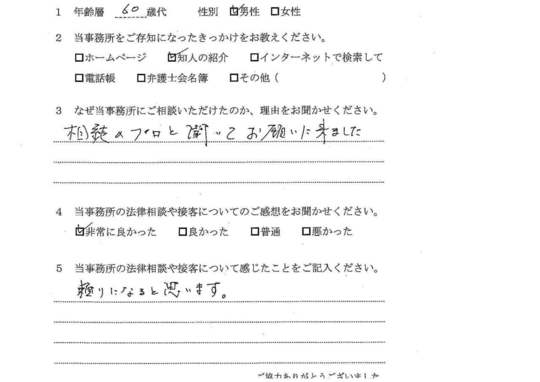 1 年齢層 60 歳代 性別 ☑男性 □女性
2 当事務所をご存知になったきっかけをお教えください。
□ホームページ ☑知人の紹介 □インターネットで検索して
□電話帳 □弁護士会名簿 □その他( )
3 なぜ当事務所にご相談いただけたのか、理由をお聞かせください。
相続のプロと聞いてお願いに来ました
4 当事務所の法律相談や接客についてのご感想をお聞かせください。
☑非常に良かった □良かった □普通 □悪かった
5 当事務所の法律相談や接客について感じたことをご記入ください。
頼りになると思います。
ご協力ありがとうございました